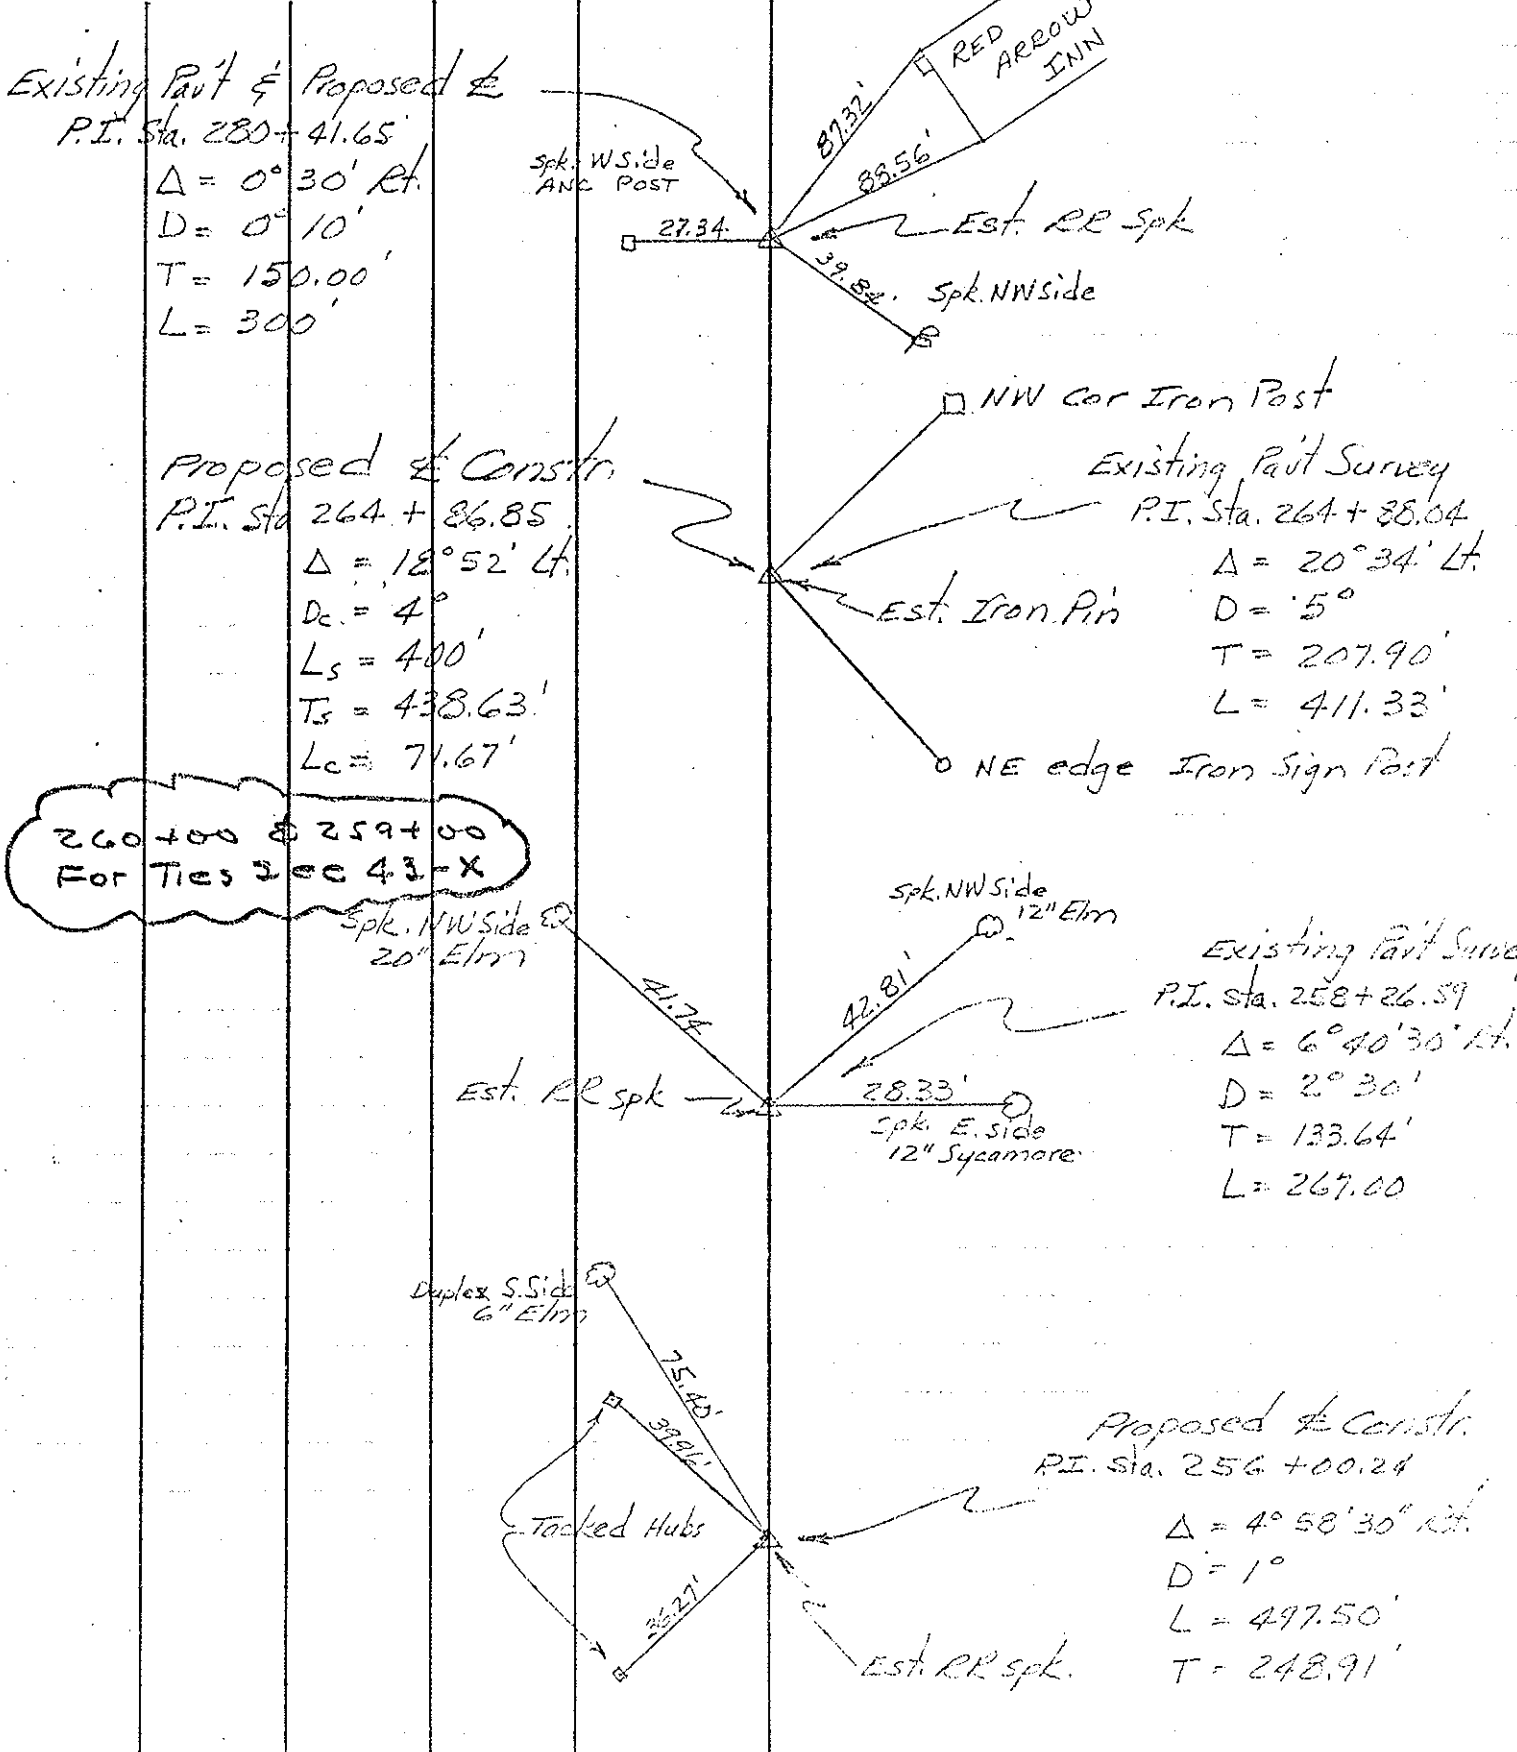 RED
ARROW
INN
Existing Pav't & Proposed ℄
P.I. Sta. 280+41.65
Δ = 0°30' Rt.
D = 0°10'
T = 150.00'
L = 300'
87.32'
88.56'
Spk. W Side
ANC POST
27.34
Est. RR Spk
39.82
Spk. NW Side
NW Cor Iron Post
Proposed ℄ Constr.
P.I. Sta 264+86.85
Δ = 18°52' Lt.
Dc. = 4°
Ls = 400'
Ts = 438.63'
Lc = 71.67'
Existing Pav't Survey
P.I. Sta. 264+88.04
Δ = 20°34' Lt.
D = 5°
T = 207.90'
L = 411.33'
Est. Iron Pin
NE edge Iron Sign Post
260+00 & 259+00
For Ties See 43-X
Spk. NW Side
20" Elm
41.74
Spk. NW Side
12" Elm
42.81'
Existing Pav't Surve
P.I. Sta. 258+26.59
Δ = 6°40'30" Rt.
D = 2°30'
T = 133.64'
L = 267.00
Est. RR spk
28.33'
Spk. E. side
12" Sycamore
Duplex S. Side
6" Elm
75.40'
39.96'
Tacked Hubs
36.27'
Proposed ℄ Constr.
P.I. Sta. 256+00.24
Δ = 4°58'30" Rt.
D = 1°
L = 497.50'
T = 248.91'
Est. RR spk.